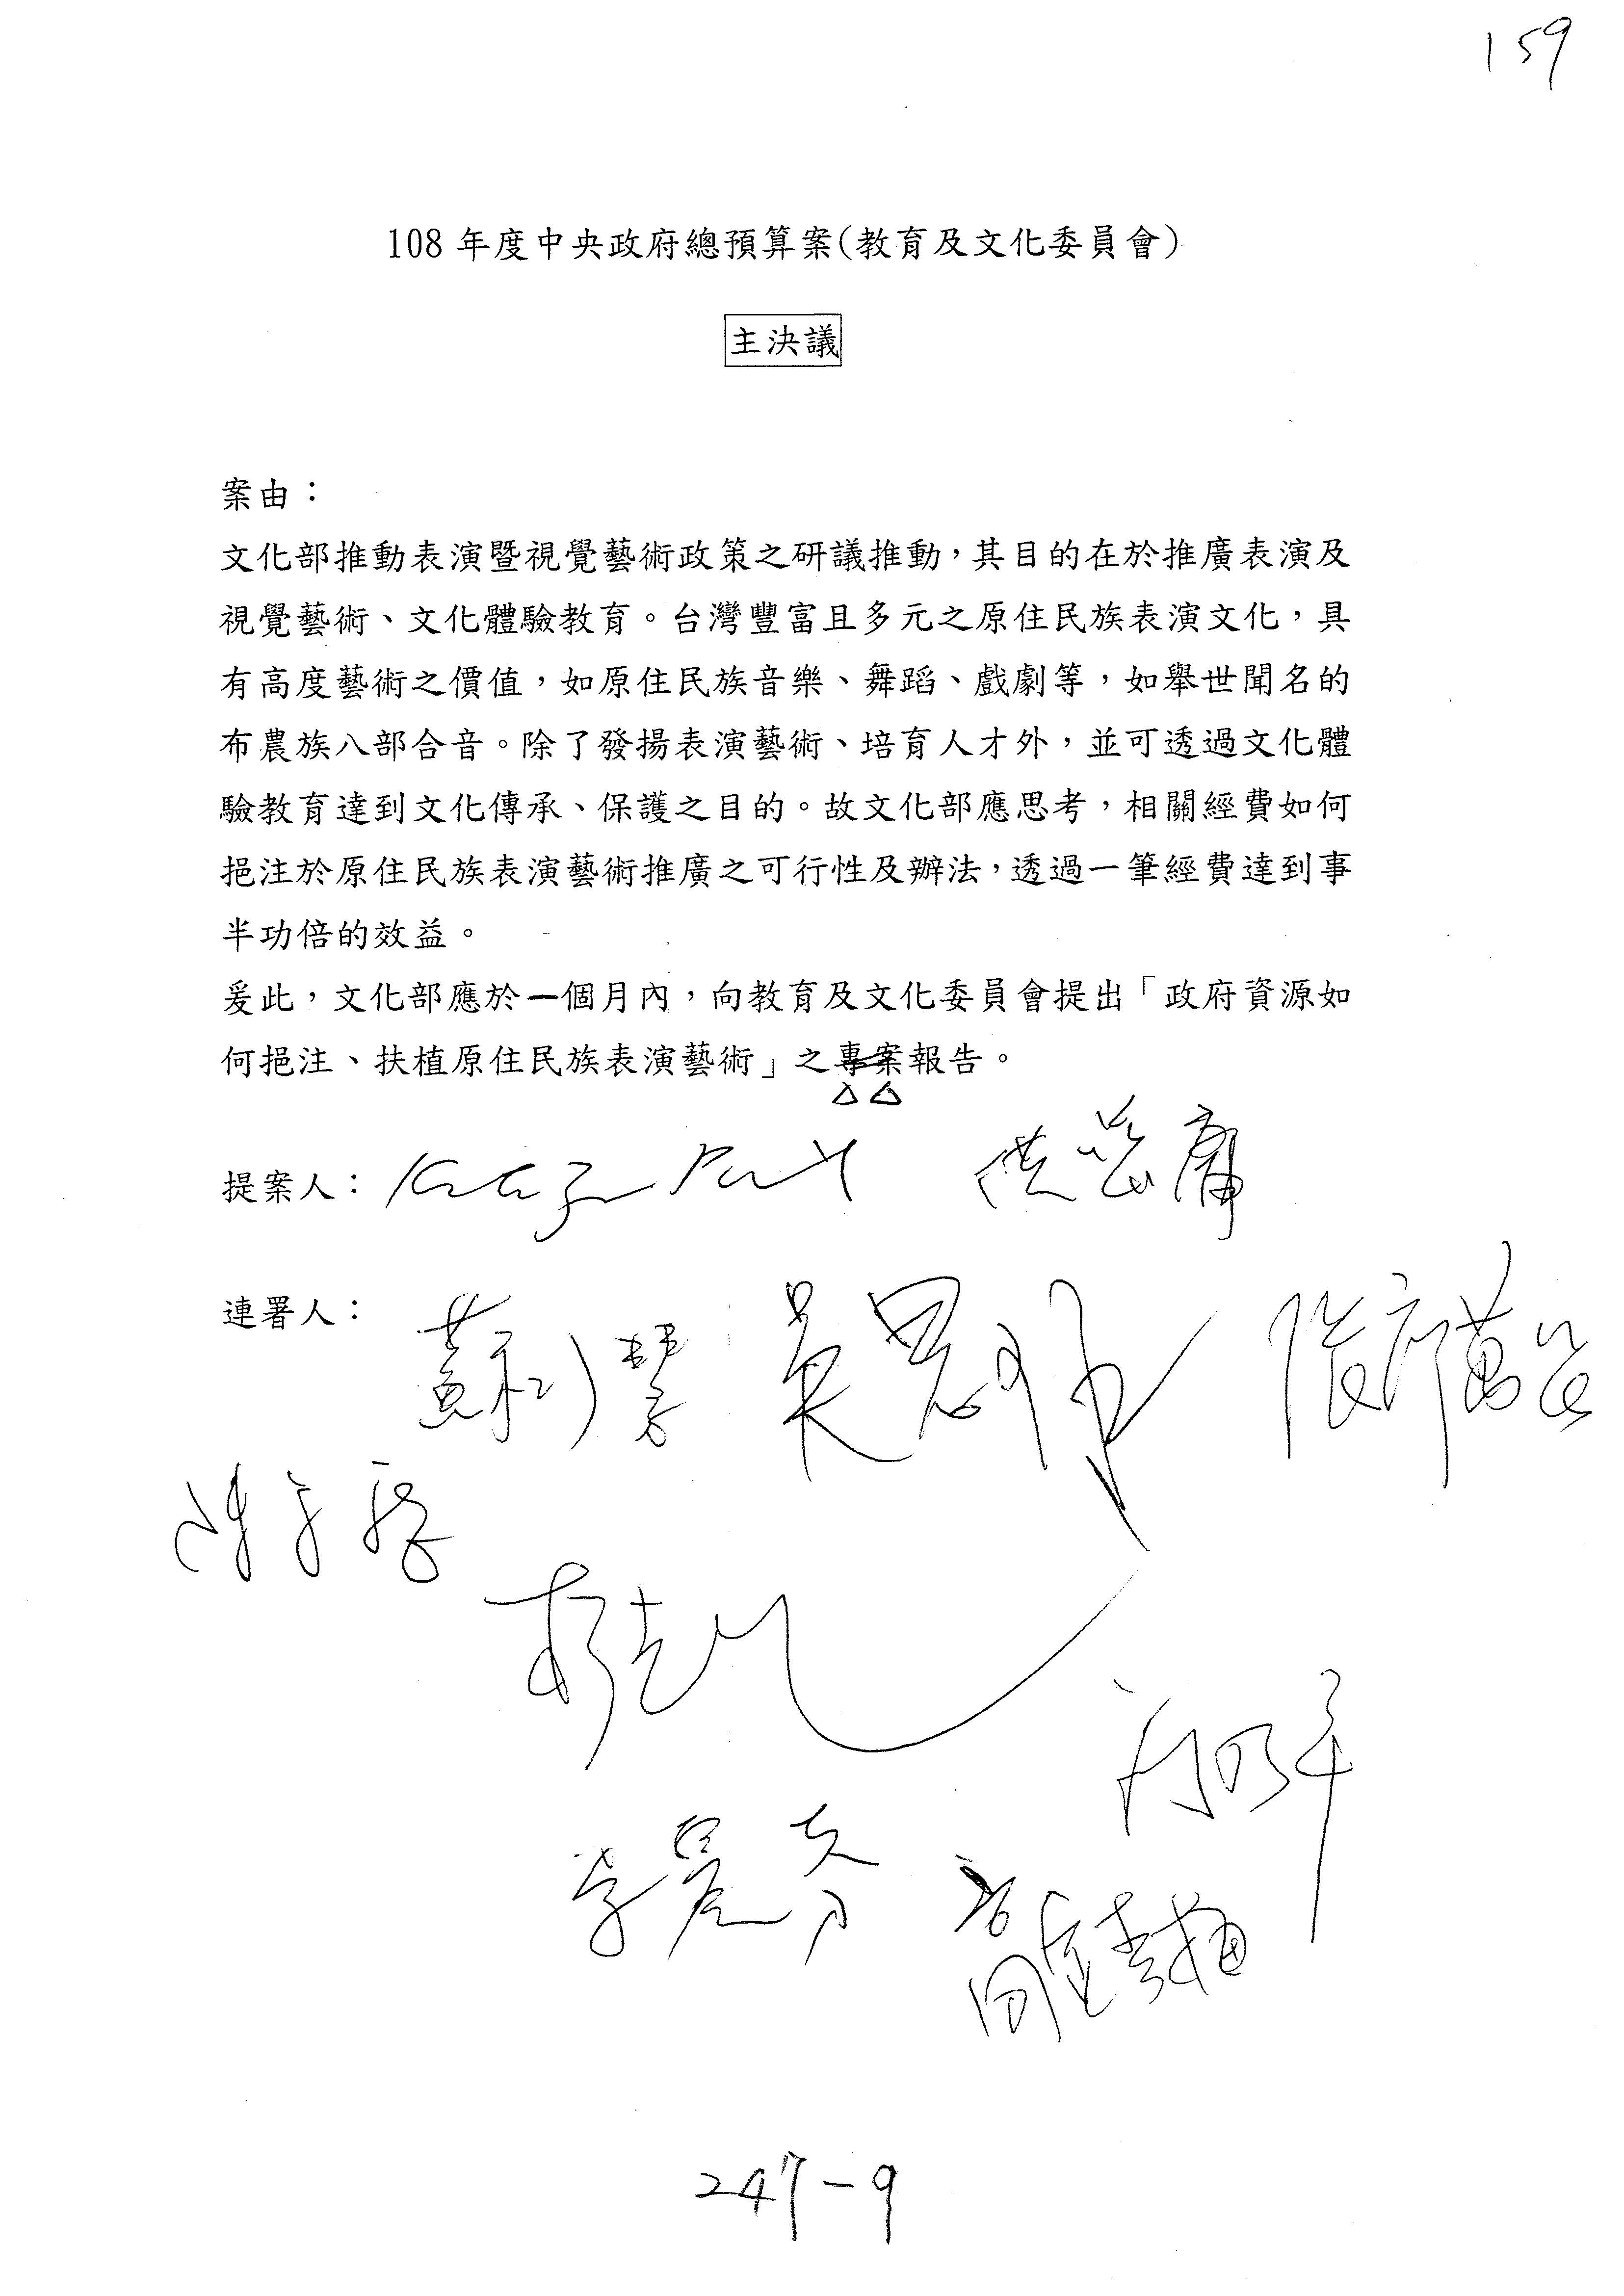 159
108 年度中央政府總預算案(教育及文化委員會)
主決議
案由：
文化部推動表演暨視覺藝術政策之研議推動，其目的在於推廣表演及
視覺藝術、文化體驗教育。台灣豐富且多元之原住民族表演文化，具
有高度藝術之價值，如原住民族音樂、舞蹈、戲劇等，如舉世聞名的
布農族八部合音。除了發揚表演藝術、培育人才外，並可透過文化體
驗教育達到文化傳承、保護之目的。故文化部應思考，相關經費如何
挹注於原住民族表演藝術推廣之可行性及辦法，透過一筆經費達到事
半功倍的效益。
爰此，文化部應於一個月內，向教育及文化委員會提出「政府資源如
何挹注、扶植原住民族表演藝術」之專案報告。
△△
提案人：
連署人：蘇巧慧 吳思瑤 張廖萬堅
李麗芬
247-9